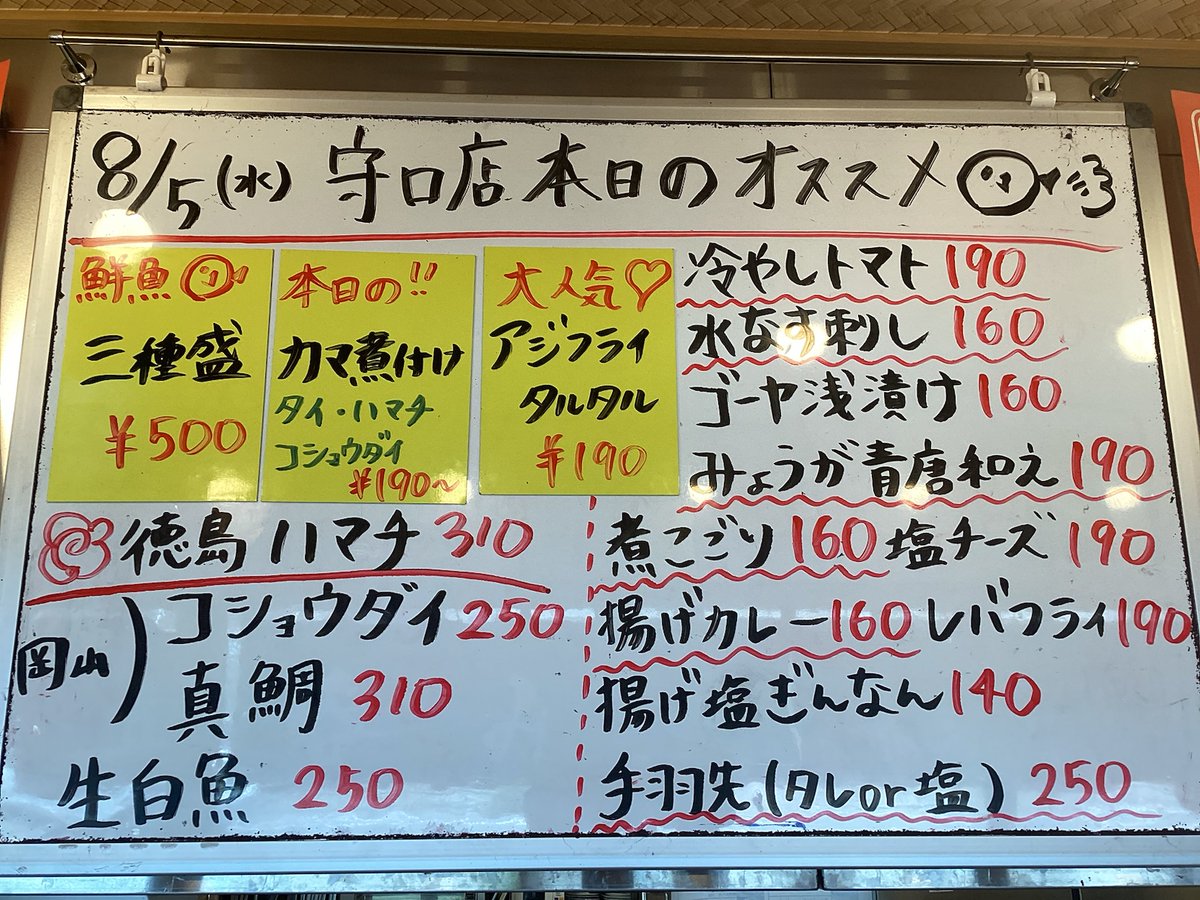 8/5(水) 守口店本日のオススメ
鮮魚
三種盛
¥500
本日の!!
カマ煮付け
タイ・ハマチ
コショウダイ
¥190〜
大人気♡
アジフライ
タルタル
¥190
冷やしトマト 190
水なす刺し 160
ゴーヤ浅漬け 160
みょうが青唐和え 190
徳島ハマチ 310
岡山)コショウダイ 250
真鯛 310
生白魚 250
煮こごり 160 塩チーズ 190
揚げカレー 160 レバフライ 190
揚げ塩ぎんなん 140
手羽先(タレor塩) 250